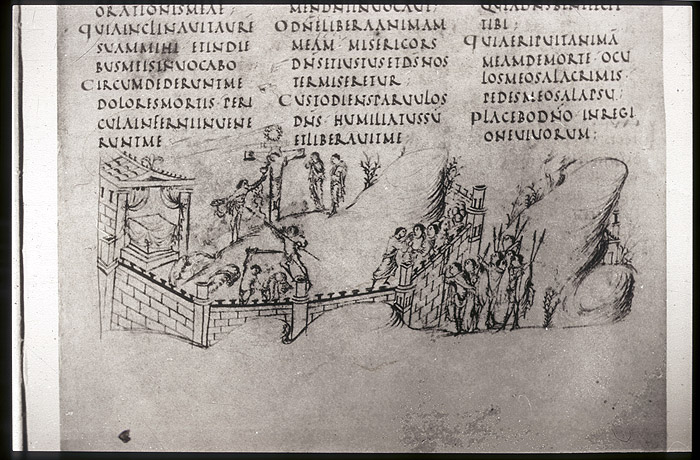 ORATIONISMEAE·
QUIAINCLINAUITAURE
SUAMMIHI ETINDIE
BUSMEISINUOCABO
CIRCUMDEDERUNTME
DOLORESMORTIS· PERI
CULAINFERNIINUENE
RUNTME
MENDNIINUOCAUI:
ODNELIBERAANIMAM
MEAM· MISERICORS
DNSETIUSTUSETDSNOS
TERMISERETUR·
CUSTODIENSPARUULOS
DNS· HUMILIATUSSŪ
ETLIBERAUITME
QUIADNSBENEFECIT
TIBI;
QUIAERIPUITANIMĀ
MEAMDEMORTE· OCU
LOSMEOSALACRIMIS·
PEDESMEOSALAPSU;
PLACEBODNO INREGI
ONEUIUORUM: